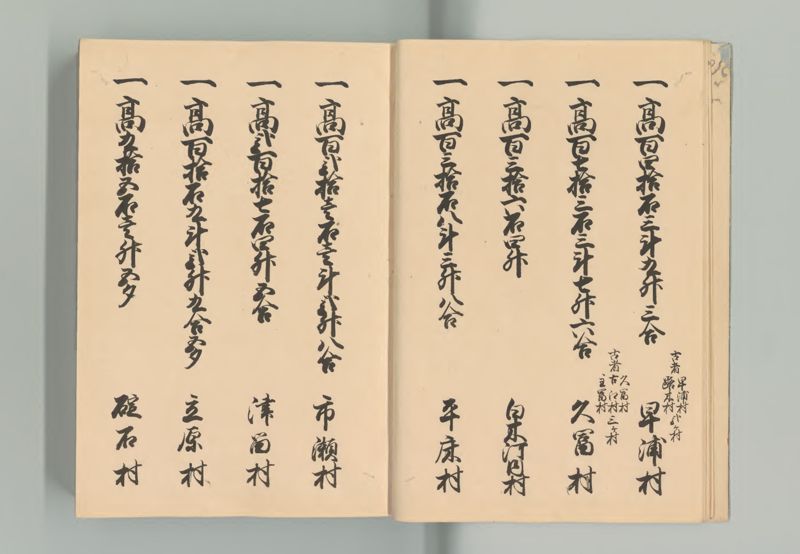 一高百四拾石三斗九升三合
古者 早浦村
路木村 弐ケ村
早浦村
一高百七拾三石三斗七升六合
古者 久冨村
古江村 三ケ村
主冨村
久冨村
一高百三拾六石四升
白木河内村
一高百三拾石八斗三升八合
平床村
一高百弐拾壱石壱斗弐升八合
市瀬村
一高弐百拾七石四升五合
津留村
一高百拾石九斗弐升九合五夕
立原村
一高九拾五石壱升五夕
碇石村